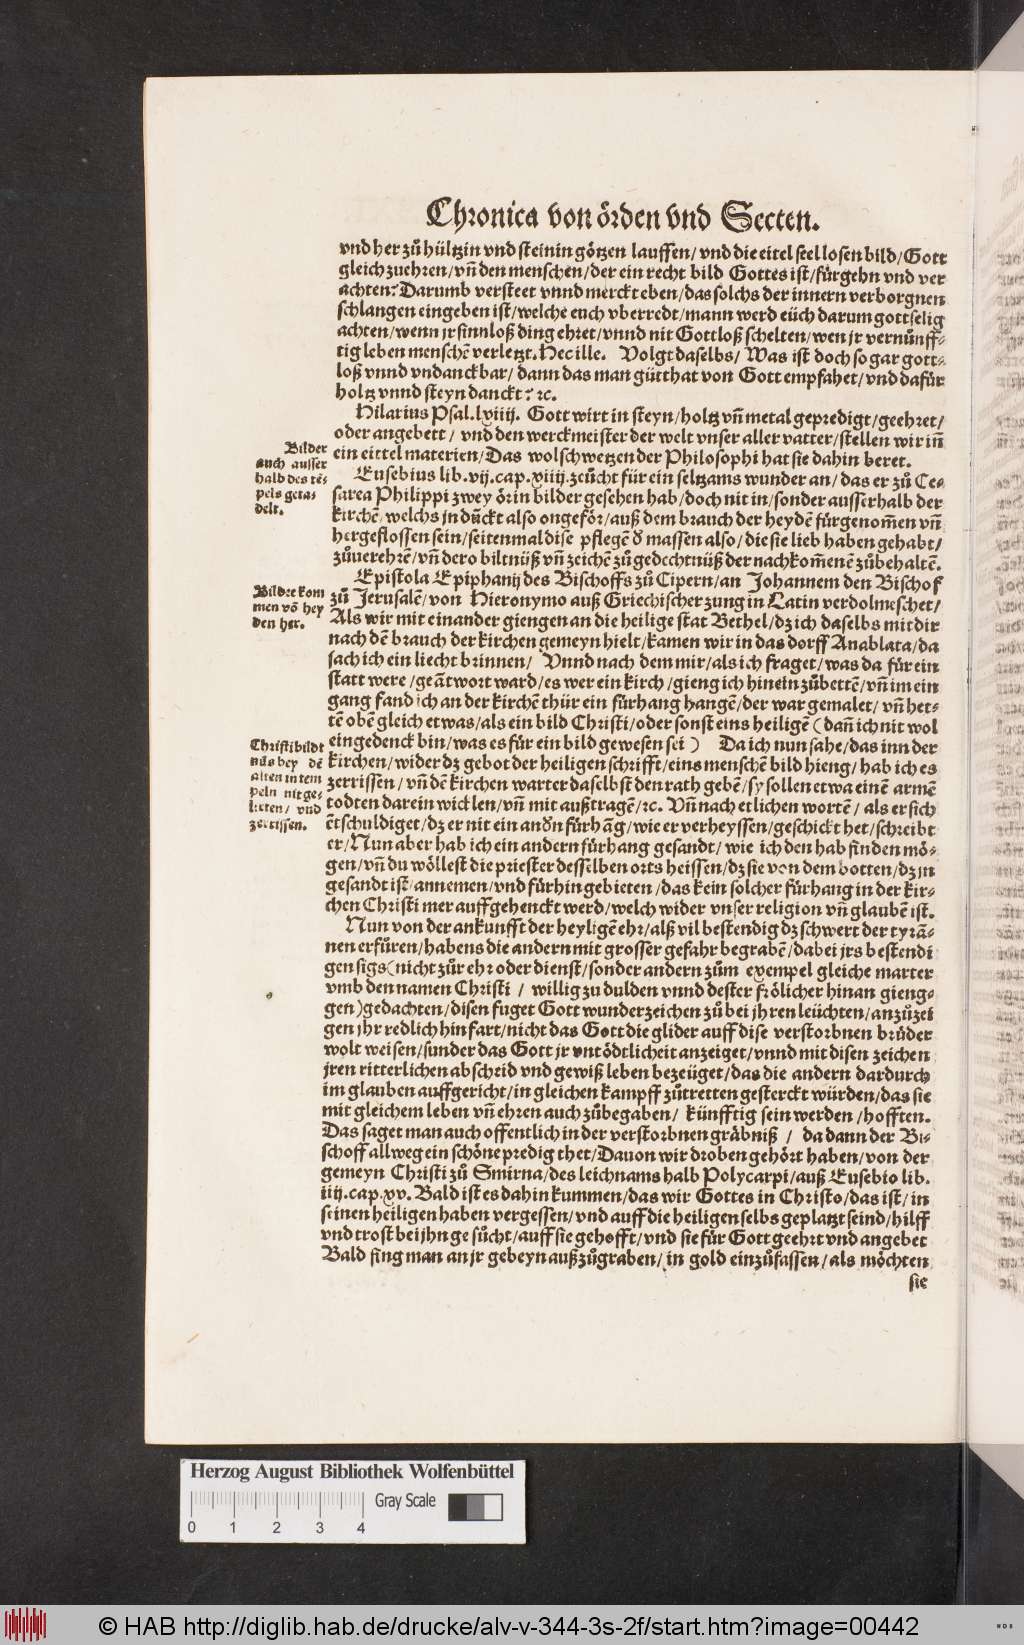 Chronica von örden vnd Secten.
vnd her zů hültzin vnd steinin götzen lauffen/ vnd die eitel seellosen bild/ Gott
gleich zuehren/ vñ den menschen/ der ein recht bild Gottes ist/ fürgehn vnd ver
achten? Darumb versteet vnnd merckt eben/ das solchs der innern verborgnen
schlangen eingeben ist/ welche euch vberredt/ mann werd eüch darum gottselig
achten/ wenn jr sinnloß ding ehret/ vnnd nit Gottloß schelten/ wen jr vernůnff⸗
tig leben menschẽ verletzt. Hec ille. Volgt daselbs/ Was ist doch so gar gott⸗
loß vnnd vndanckbar/ dann das man gütthat von Gott empfahet/ vnd dafür
holtz vnnd steyn danckt? ⁊c.
Hilarius Psal. lxiiij. Gott wirt in steyn/ holtz vñ metal gepredigt/ geehret/
oder angebett/ vnd den werckmeister der welt vnser aller vatter/ stellen wir iñ
ein eittel materien/ Das wolschwetzen der Philosophi hat sie dahin beret.
Bilder
auch ausser
halb des tẽ⸗
pels geta⸗
delt.
Eusebius lib. vij. cap. xiiij. zeücht für ein seltzams wunder an/ das er zů Ce⸗
sarea Philippi zwey örin bilder gesehen hab/ doch nit in/ sonder ausserhalb der
kirchẽ/ welchs jn dũckt also ongefőr/ auß dem brauch der heydẽ fürgenom̃en vñ
hergeflossen sein/ seitenmal dise pflegẽ ð massen also/ die sie lieb haben gehabt/
zůuerehrẽ/ vñ dero biltnüß vñ zeichẽ zů gedechtnüß der nachkom̃enẽ zůbehaltẽ.
Epistola Epiphanij des Bischoffs zů Cipern/ an Johannem den Bischof
zů Jerusalẽ/ von Hieronymo auß Griechischer zung in Latin verdolmeschet/
Bilder kom
men võ hey
den her.
Als wir mit einander giengen an die heilige stat Bethel/ dz ich daselbs mit dir
nach dẽ brauch der kirchen gemeyn hielt/ kamen wir in das dorff Anablata/ da
sach ich ein liecht brinnen/ Vnnd nach dem mir/ als ich fraget/ was da für ein
statt were/ geãtwort ward/ es wer ein kirch/ gieng ich hinein zů bettẽ/ vñ im ein
gang fand ich an der kirchẽ thür ein fürhang hangẽ/ der war gemalet/ vñ het⸗
tẽ obẽ gleich etwas/ als ein bild Christi/ oder sonst eins heiligẽ (dañ ich nit wol
eingedenck bin/ was es für ein bild gewesen sei) Da ich nun sahe/ das inn der
Christi bildt
nüs bey dẽ
alten in tem
peln nit ge⸗
litten/ vnd
zerrissen.
kirchen/ wider dz gebot der heiligen schrifft/ eins menschẽ bild hieng/ hab ich es
zerrissen/ vñ dẽ kirchen warter daselbst den rath gebẽ/ sy sollen etwa einẽ armẽ
todten darein wicklen/ vñ mit außtragẽ/ ⁊c. Vñ nach etlichen wortẽ/ als er sich
ẽtschuldiget/ dz er nit ein anðn fürhãg/ wie er verheyssen/ geschickt het/ schreibt
er/ Nun aber hab ich ein andern fürhang gesandt/ wie ich den hab finden mő⸗
gen/ vñ du wöllest die priester desselben orts heissen/ dz sie von dem botten/ dz jn
gesandt ist/ annemen/ vnd fürhin gebieten/ das kein solcher fürhang in der kir⸗
chen Christi mer auffgehenckt werd/ welch wider vnser religion vñ glaubẽ ist.
Nun von der ankunfft der heyligẽ ehr/ alß vil bestendig dz schwert der tyrã⸗
nen erfůren/ habens die andern mit grosser gefahr begrabẽ/ dabei jrs bestendi
gen sigs (nicht zůr ehr oder dienst/ sonder andern zům exempel gleiche marter
vmb den namen Christi/ willig zu dulden vnnd dester frőlicher hinan gieng⸗
gen) gedachten/ disen fuget Gott wunderzeichen zů bei jhren leüchten/ anzůzei
gen jhr redlich hinfart/ nicht das Gott die glider auff dise verstorbnen brůder
wolt weisen/ sunder das Gott jr vntödtlicheit anzeiget/ vnnd mit disen zeichen
jren ritterlichen abscheid vnd gewiß leben bezeüget/ das die andern dardurch
im glauben auffgericht/ in gleichen kampff zůtretten gesterckt würden/ das sie
mit gleichem leben vñ ehren auch zůbegaben/ künfftig sein werden/ hofften.
Das saget man auch offentlich in der verstorbnen gräbniß/ da dann der Bi⸗
schoff allweg ein schöne predig thet/ Dauon wir droben gehört haben/ von der
gemeyn Christi zů Smirna/ des leichnams halb Polycarpi/ auß Eusebio lib.
iiij. cap. xv. Bald ist es dahin kummen/ das wir Gottes in Christo/ das ist/ in
seinen heiligen haben vergessen/ vnd auff die heiligen selbs geplatzt seind/ hilff
vnd trost bei jhn gesůcht/ auff sie gehofft/ vnd sie für Gott geehrt vnd angebet
Bald fing man an jr gebeyn außzůgraben/ in gold einzůfassen/ als möchten
sie
Herzog August Bibliothek Wolfenbüttel
Gray Scale
0 1 2 3 4
© HAB http://diglib.hab.de/drucke/alv-v-344-3s-2f/start.htm?image=00442